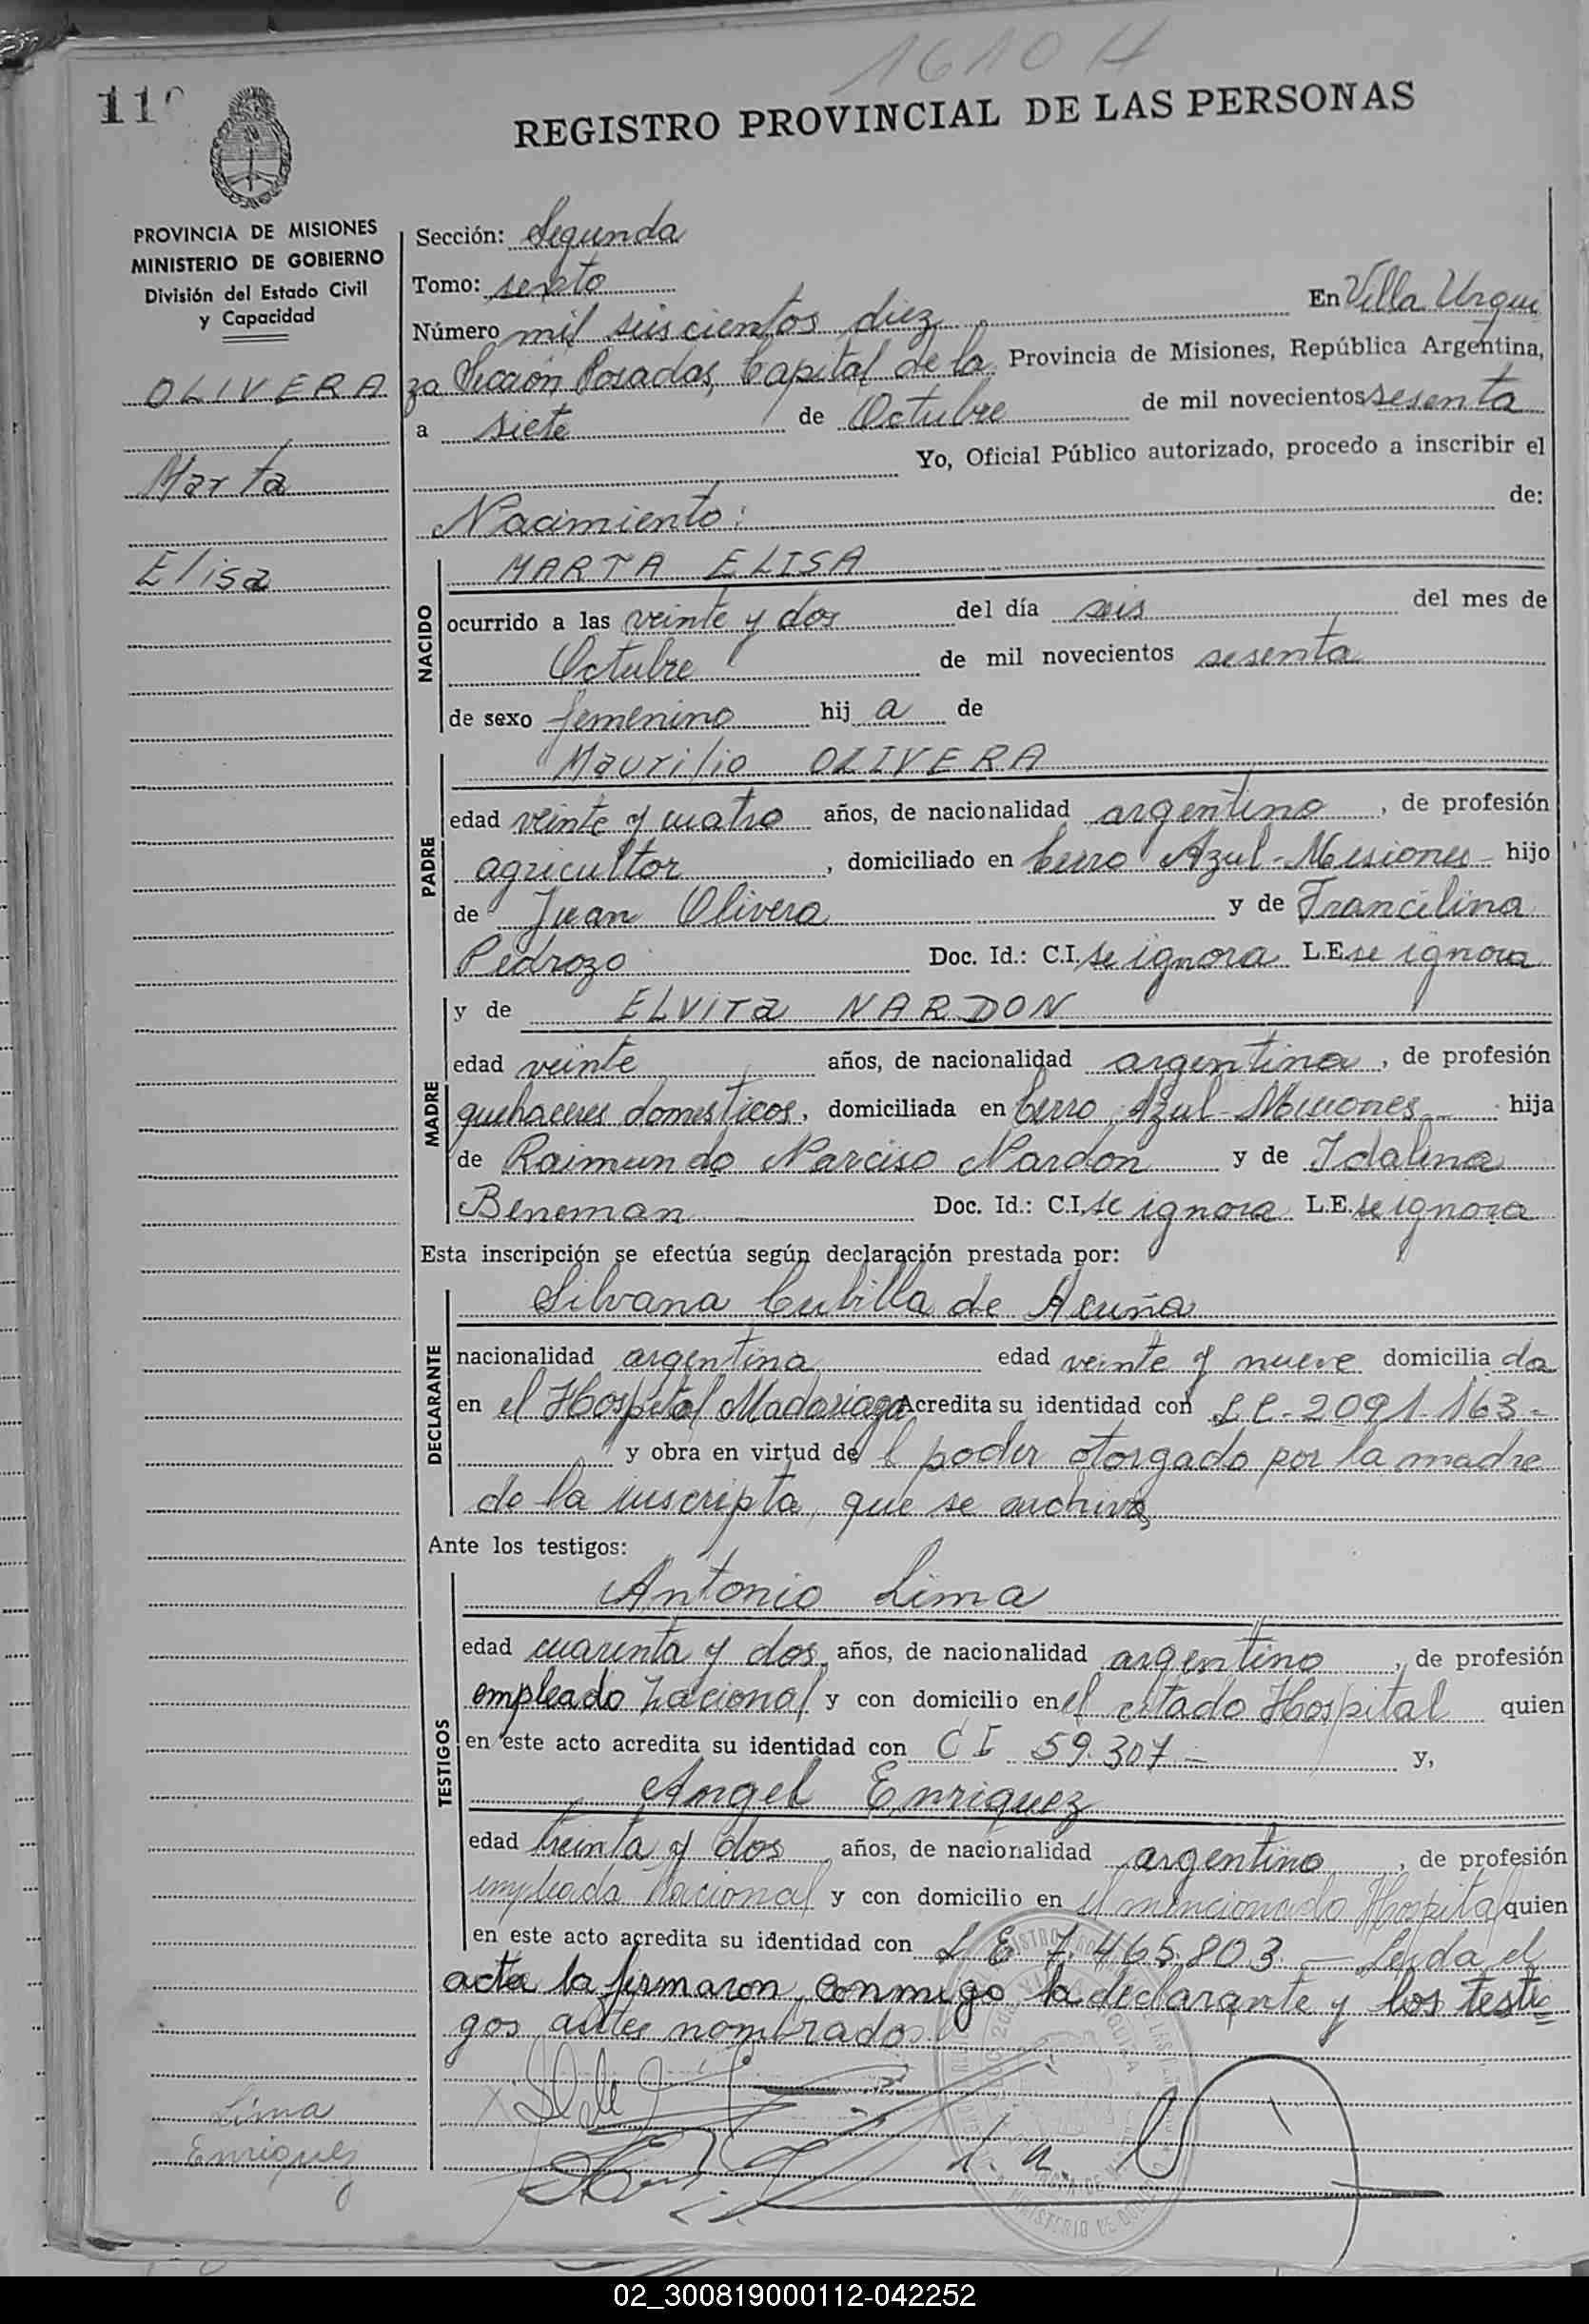 1610 H
11
REGISTRO PROVINCIAL DE LAS PERSONAS
PROVINCIA DE MISIONES
MINISTERIO DE GOBIERNO
División del Estado Civil
y Capacidad
OLIVERA
Marta
Elisa
Sección: Segunda
Tomo: sexto
En Villa Urqui
Número mil seiscientos diez
za Sección Posadas, Capital de la Provincia de Misiones, República Argentina,
a siete de Octubre de mil novecientos sesenta
Yo, Oficial Público autorizado, procedo a inscribir el
Nacimiento: de:
NACIDO
MARTA ELISA
ocurrido a las veinte y dos del día seis del mes de
Octubre de mil novecientos sesenta
de sexo femenino hij a de
PADRE
Maurilio OLIVERA
edad veinte y cuatro años, de nacionalidad argentino, de profesión
agricultor, domiciliado en Cerro Azul - Misiones - hijo
de Juan Olivera y de Francilina
Pedrozo Doc. Id.: C.I. se ignora L.E. se ignora
MADRE
y de ELVIRA NARDON
edad veinte años, de nacionalidad argentina, de profesión
quehaceres domesticos, domiciliada en Cerro Azul - Misiones - hija
de Raimundo Narciso Nardon y de Idalina
Beneman Doc. Id.: C.I. se ignora L.E. se ignora
Esta inscripción se efectúa según declaración prestada por:
DECLARANTE
Silvana Cubilla de Acuña
nacionalidad argentina edad veinte y nueve domicilia da
en el Hospital Madariaga Acredita su identidad con L C - 2091.163 -
y obra en virtud de l poder otorgado por la madre
de la inscripta, que se archiva
Ante los testigos:
TESTIGOS
Antonio Lima
edad cuarenta y dos años, de nacionalidad argentino, de profesión
empleado nacional y con domicilio en el citado Hospital quien
en este acto acredita su identidad con C I 59.307 - y,
Angel Enriquez
edad treinta y dos años, de nacionalidad argentino, de profesión
empleado nacional y con domicilio en el mencionado Hospital quien
en este acto acredita su identidad con L E 7.465.803. - Leida el
acta la firmaron conmigo la declarante y los testi=
gos antes nombrados
Lima
Enriquez
02_300819000112-042252